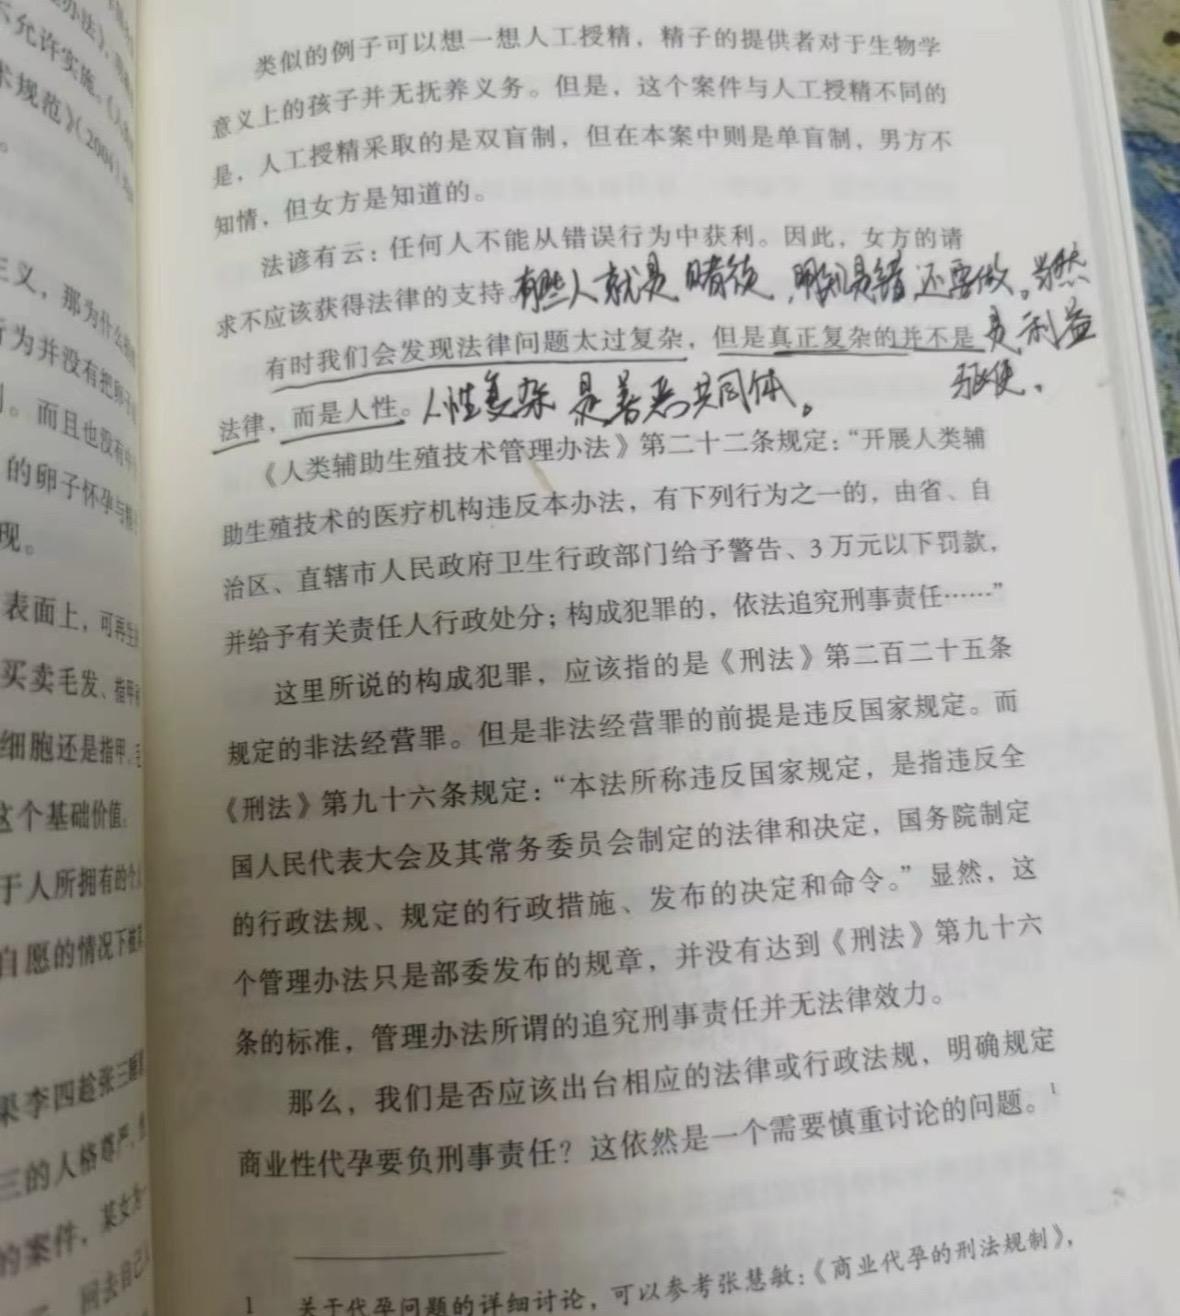 办法》，
不允许实施。《人
术规范》（2001）
。
主义，那为什么
行为并没有把卵子
。而且也没有
的卵子怀孕与
现。
表面上，可再生
买卖毛发、指甲
细胞还是指甲，
这个基础价值。
于人所拥有的个人
自愿的情况下被
果李四趁张三睡
三的人格尊严，
的案件，某女
回去自己
类似的例子可以想一想人工授精，精子的提供者对于生物学
意义上的孩子并无抚养义务。但是，这个案件与人工授精不同的
是，人工授精采取的是双盲制，但在本案中则是单盲制，男方不
知情，但女方是知道的。
法谚有云：任何人不能从错误行为中获利。因此，女方的请
求不应该获得法律的支持。有些人就是赌徒，明知是错还要做。当然
有时我们会发现法律问题太过复杂，但是真正复杂的并不是 是利益
驱使。
法律，而是人性。人性复杂 是善恶共同体。
《人类辅助生殖技术管理办法》第二十二条规定：“开展人类辅
助生殖技术的医疗机构违反本办法，有下列行为之一的，由省、自
治区、直辖市人民政府卫生行政部门给予警告、3万元以下罚款，
并给予有关责任人行政处分；构成犯罪的，依法追究刑事责任……”
这里所说的构成犯罪，应该指的是《刑法》第二百二十五条
规定的非法经营罪。但是非法经营罪的前提是违反国家规定。而
《刑法》第九十六条规定：“本法所称违反国家规定，是指违反全
国人民代表大会及其常务委员会制定的法律和决定，国务院制定
的行政法规、规定的行政措施、发布的决定和命令。”显然，这
个管理办法只是部委发布的规章，并没有达到《刑法》第九十六
条的标准，管理办法所谓的追究刑事责任并无法律效力。
那么，我们是否应该出台相应的法律或行政法规，明确规定
商业性代孕要负刑事责任？这依然是一个需要慎重讨论的问题。1
1 关于代孕问题的详细讨论，可以参考张慧敏：《商业代孕的刑法规制》，